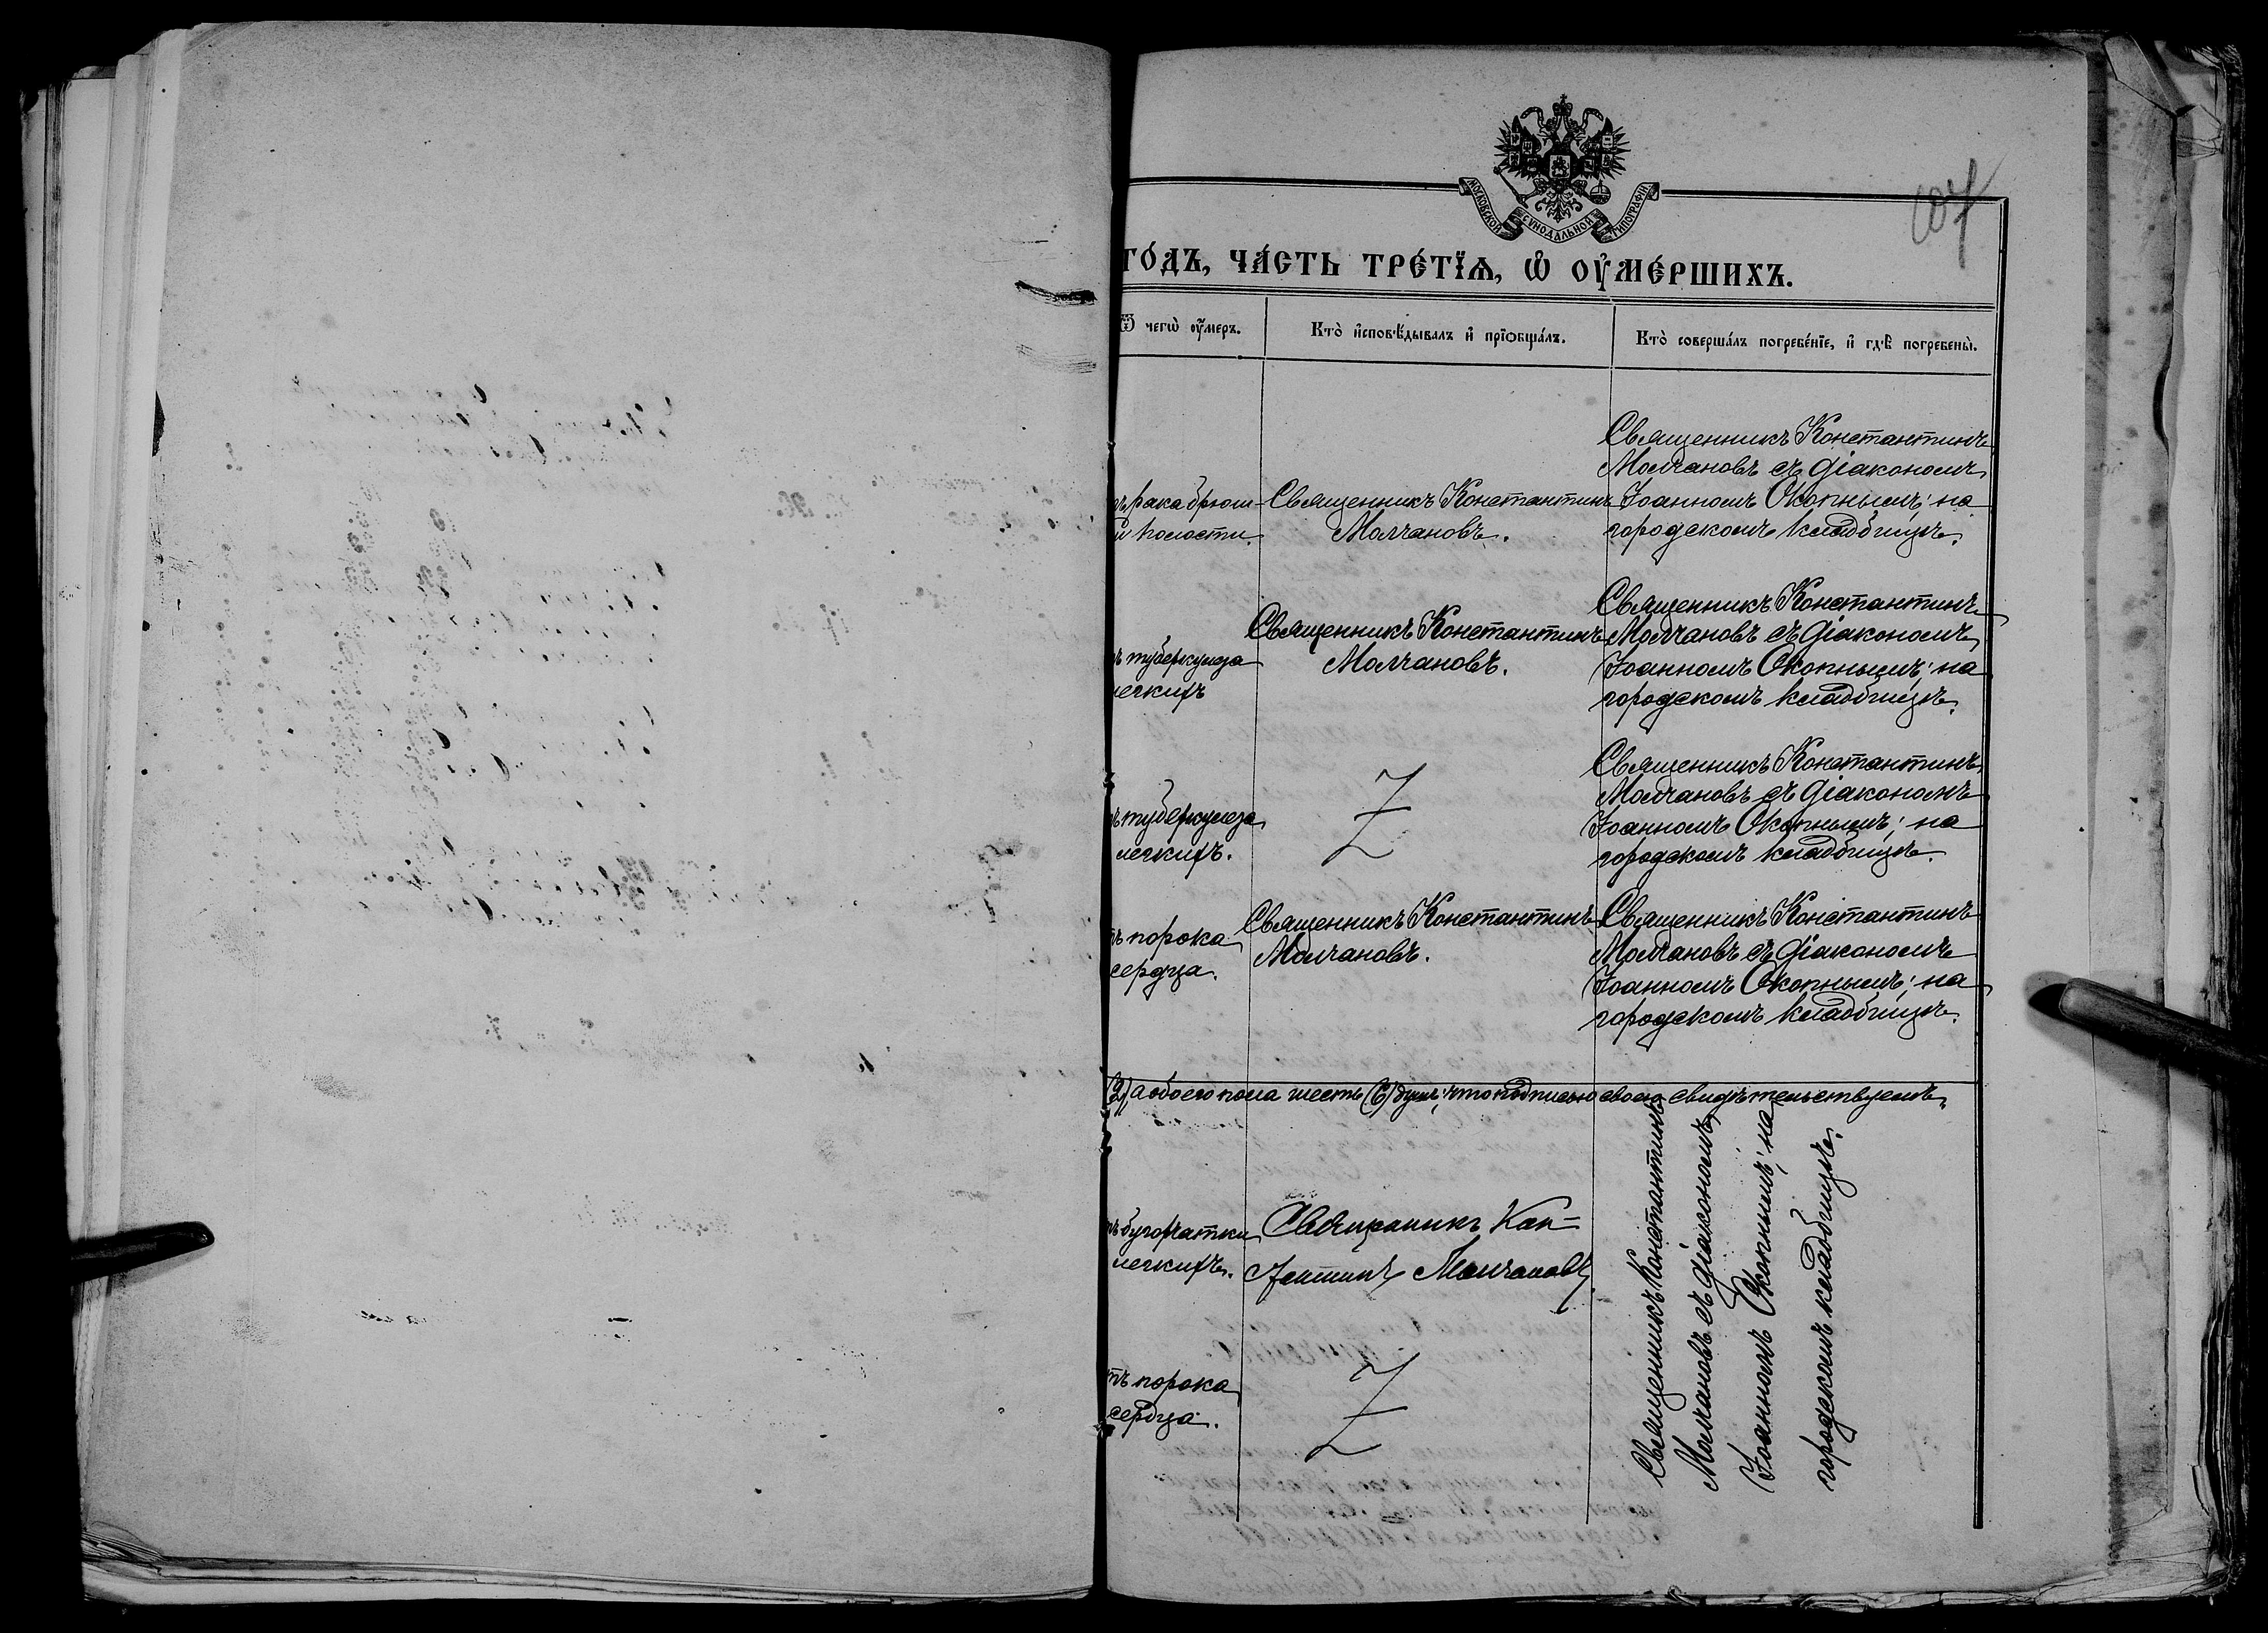 МОСКОВСКОЙ СѴНОДАЛЬНОЙ ТИПОГРАФІИ
годъ, часть третїѧ, ѡ оумершихъ.
Ѿ чегѡ оумеръ.
Кто исповѣдывалъ и прїѡбщалъ.
Кто совершалъ погребенїе, и гдѣ погребены.
рака брюш-
й полости.
Священникъ Константинъ
Молчановъ.
Священникъ Константинъ
Молчановъ съ діакономъ
Іоанномъ Окопнымъ; на
городскомъ кладбищѣ.
ъ туберкулеза
легкихъ
Священникъ Константинъ
Молчановъ.
Священникъ Константинъ
Молчановъ съ діакономъ
Іоанномъ Окопнымъ; на
городскомъ кладбищѣ.
ъ туберкулеза
легкихъ.
Священникъ Константинъ
Молчановъ съ діакономъ
Іоанномъ Окопнымъ; на
городскомъ кладбищѣ.
ъ порока
сердца.
Священникъ Константинъ
Молчановъ.
Священникъ Константинъ
Молчановъ съ діакономъ
Іоанномъ Окопнымъ; на
городскомъ кладбищѣ.
(2), а обоего пола шесть (6) душъ, что подписью своею свидѣтельствуемъ.
ъ бугорчатки
легкихъ.
Священникъ Кон=
стантинъ Молчановъ.
Священникъ Константинъ
Молчановъ съ діакономъ
Іоанномъ Окопнымъ; на
городскомъ кладбищѣ.
тъ порока
сердца.